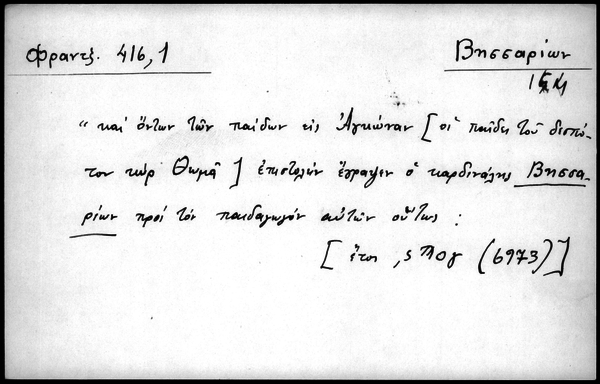 Φραντζ. 416,1
Βησσαρίων
“ καὶ ὄντων τῶν παίδων εἰς Ἀγκῶναν [οἱ παῖδες τοῦ δεσπό-
του κὺρ Θωμᾶ] ἐπιστολὴν ἔγραψεν ὁ καρδινάλης Βησσα-
ρίων πρὸς τὸν παιδαγωγὸν αὐτῶν οὕτως :
[ἔτος ,ςϠογ (6973)]